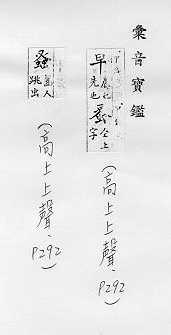 彙音寶鑑
早
先也
仝上
字
(高上上聲,P292)
蚤
齧人
跳出
(高上上聲,P292)